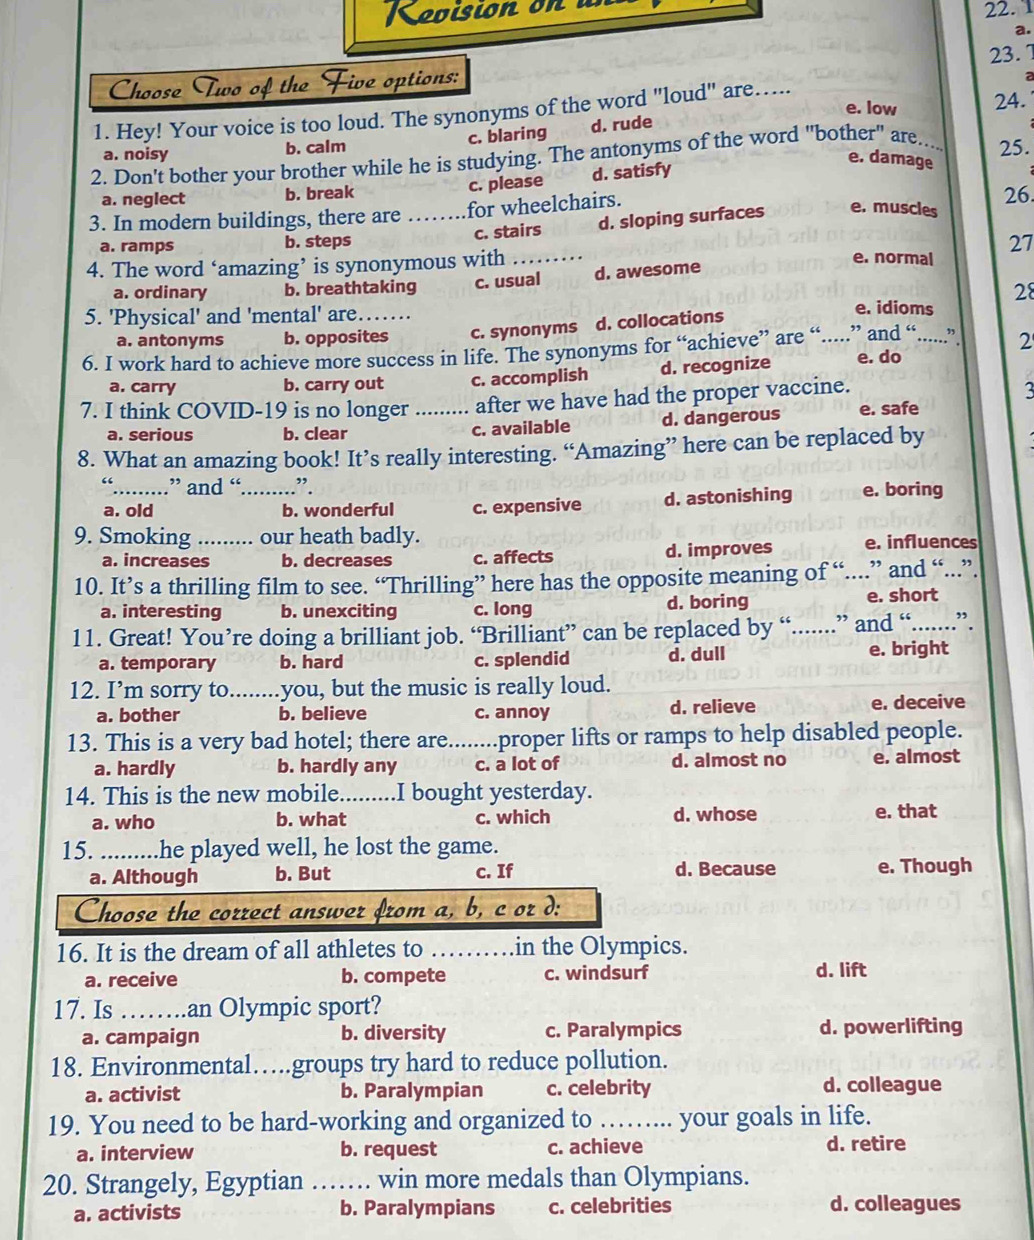 Revision on
Choose Two of the Five options:
1. Hey! Your voice is too loud. The synonyms of the word "loud" are.....
a. noisy b. calm c. blaring d. rude e. low
2. Don't bother your brother while he is studying. The antonyms of the word "bother" are....
a. neglect b. break c. please d. satisfy e. damage
3. In modern buildings, there are ........for wheelchairs.
a. ramps b. steps c. stairs d. sloping surfaces e. muscles
4. The word ‘amazing’ is synonymous with .........
a. ordinary b. breathtaking c. usual d. awesome e. normal
5. 'Physical' and 'mental' are.......
a. antonyms b. opposites c. synonyms d. collocations e. idioms
6. I work hard to achieve more success in life. The synonyms for “achieve” are “.....” and “......”.
a. carry b. carry out c. accomplish d. recognize e. do
7. I think COVID-19 is no longer ......... after we have had the proper vaccine.
a. serious b. clear c. available d. dangerous e. safe
8. What an amazing book! It’s really interesting. “Amazing” here can be replaced by
“.........” and “.........”
a. old b. wonderful c. expensive d. astonishing e. boring
9. Smoking ......... our heath badly.
a. increases b. decreases c. affects d. improves e. influences
10. It’s a thrilling film to see. “Thrilling” here has the opposite meaning of “....” and “...”.
a. interesting b. unexciting c. long d. boring e. short
11. Great! You’re doing a brilliant job. “Brilliant” can be replaced by “.......” and “.......”.
a. temporary b. hard c. splendid d. dull e. bright
12. I’m sorry to........you, but the music is really loud.
a. bother b. believe c. annoy d. relieve e. deceive
13. This is a very bad hotel; there are........proper lifts or ramps to help disabled people.
a. hardly b. hardly any c. a lot of d. almost no e. almost
14. This is the new mobile.........I bought yesterday.
a. who b. what c. which d. whose e. that
15. ..........he played well, he lost the game.
a. Although b. But c. If d. Because e. Though
Choose the correct answer from a, b, c or d:
16. It is the dream of all athletes to ..........in the Olympics.
a. receive b. compete c. windsurf d. lift
17. Is ........an Olympic sport?
a. campaign b. diversity c. Paralympics d. powerlifting
18. Environmental.....groups try hard to reduce pollution.
a. activist b. Paralympian c. celebrity d. colleague
19. You need to be hard-working and organized to ......... your goals in life.
a. interview b. request c. achieve d. retire
20. Strangely, Egyptian ....... win more medals than Olympians.
a. activists b. Paralympians c. celebrities d. colleagues
22.
a.
23.
24.
25.
26.
27